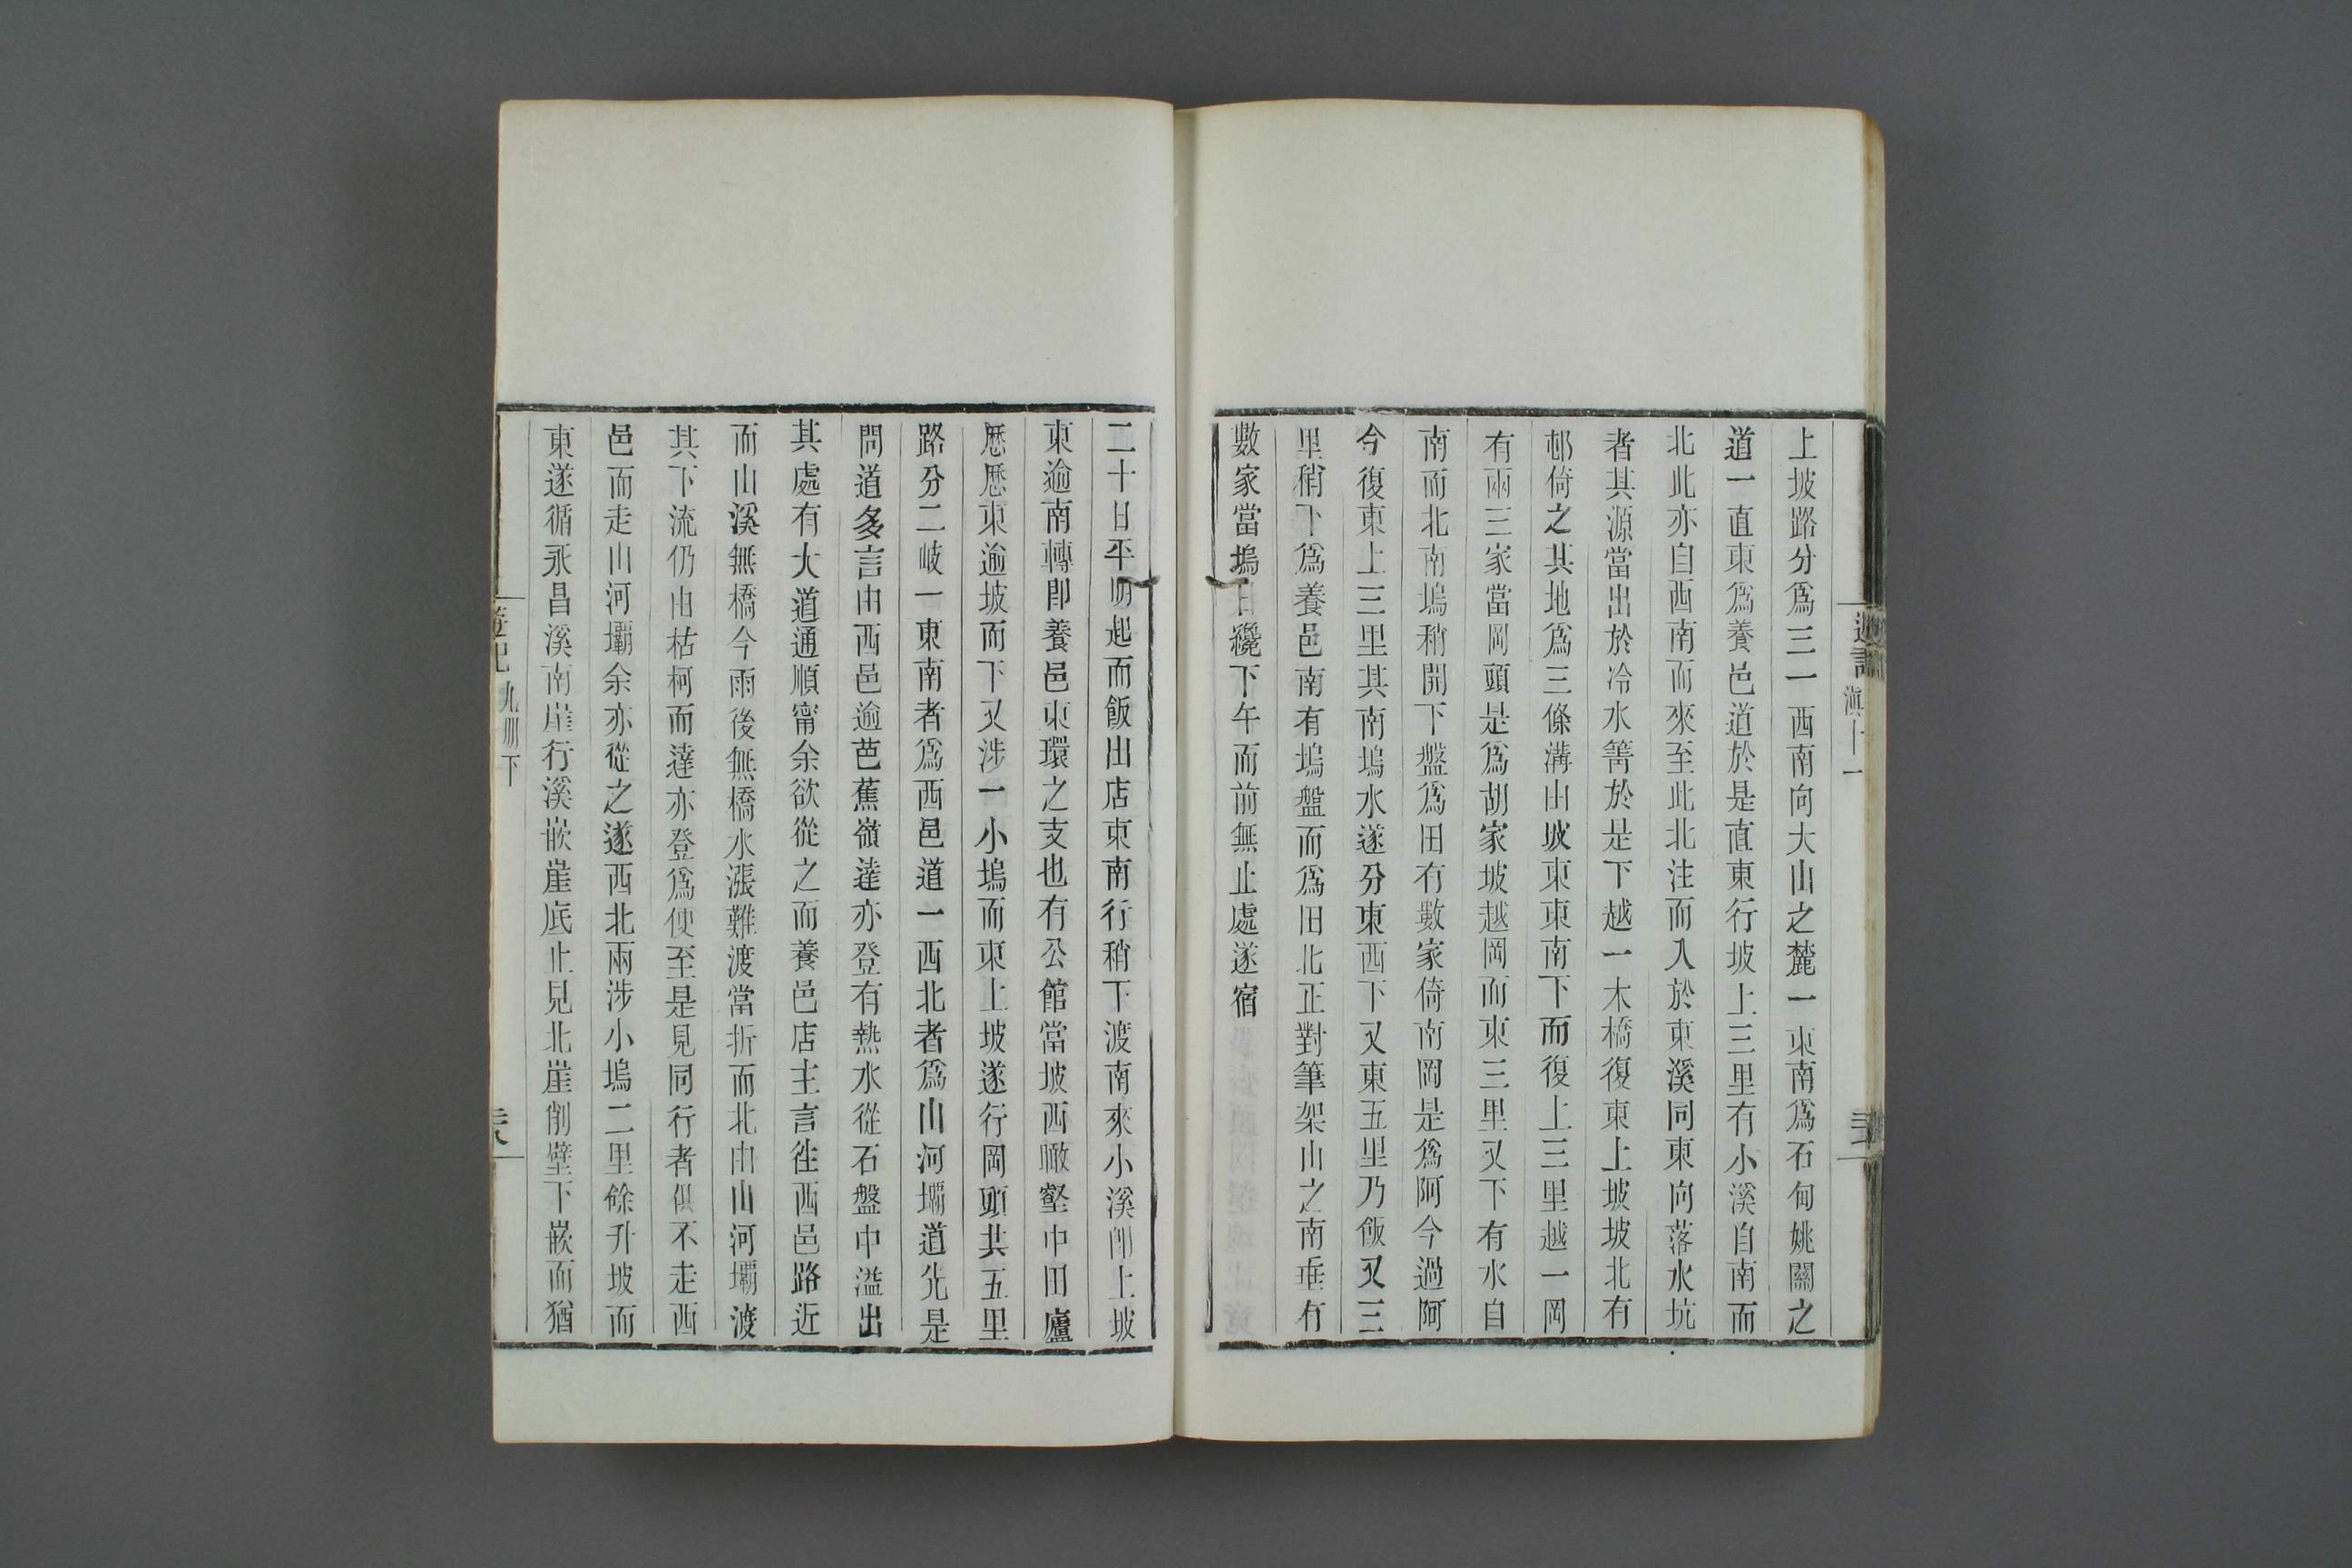 上坡路分爲三一西南向大山之麓一東南爲石甸姚關之
道一直東爲養邑道於是直東行坡上三里有小溪自南而
北此亦自西南而來至此北注而入於東溪同東向落水坑
者其源當出於冷水箐於是下越一木橋復東上坡坡北有
邨倚之其地爲三條溝由坡東東南下而復上三里越一岡
有兩三家當岡頭是爲胡家坡越岡而東三里又下有水自
南而北南塢稍開下盤爲田有數家倚南岡是爲阿今過阿
今復東上三里其南塢水遂分東西下又東五里乃飯又三
里稍下爲養邑南有塢盤而爲田北正對筆架山之南垂有
數家當塢日纔下午而前無止處遂宿
二十日平明起而飯出店東南行稍下渡南來小溪卽上坡
東逾南轉卽養邑東環之支也有公館當坡西瞰壑中田廬
歷歷東逾坡而下又涉一小塢而東上坡遂行岡頭共五里
路分二岐一東南者爲西邑道一西北者爲山河壩道先是
問道多言由西邑逾芭蕉嶺達亦登有熱水從石盤中溢出
其處有大道通順甯余欲從之而養邑店主言徃西邑路近
而山溪無橋今雨後無橋水漲難渡當折而北由山河壩渡
其下流仍由枯柯而達亦登爲便至是見同行者俱不走西
邑而走山河壩余亦從之遂西北兩涉小塢二里餘升坡而
東遂循永昌溪南崖行溪嵌崖底止見北崖削壁下嵌而猶
遊記 九冊下